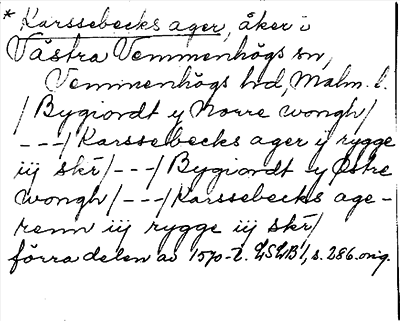 * Karssebecks ager, åker i
Västra Vemmenhögs sn,
Vemmenhögs hd, Malm. l.
/ Bygiordt y Norre wongh /
---/ Karssebecks ager ij rygge
iij skr/---/ Bygiordt y Østre
wongh /---/ Karssebecks age-
renn iij rygge iij skr/
förra delen av 1570-t. LSLB1, s. 286. orig.